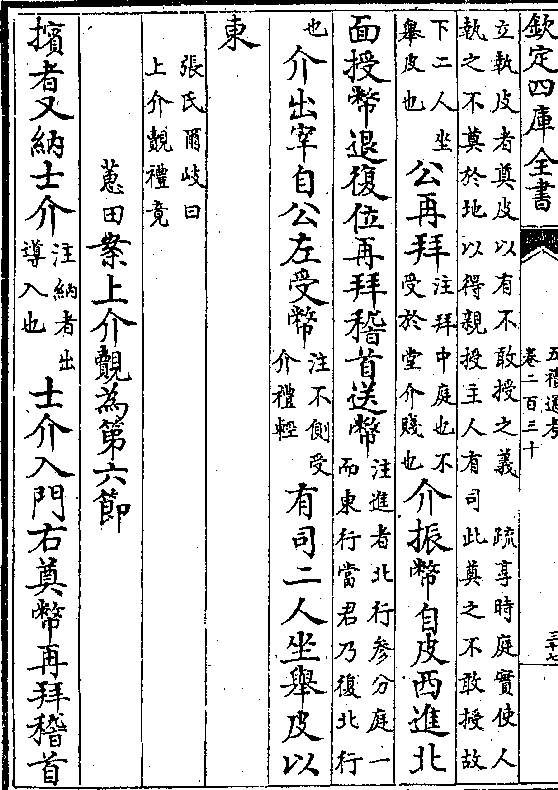 欽定四庫全書
五禮通考
卷二百三十
三十七
立執皮者奠皮以有不敢授之義　疏享時庭實使人
執之不奠於地以得親授主人有司此奠之不敢授故
下二人坐
舉皮也
公再拜
注拜中庭也不
受於堂介賤也
介振幣自皮西進北
面授幣退復位再拜稽首送幣
注進者北行參分庭一
而東行當君乃復北行
也
介出宰自公左受幣
注不側受
介禮輕
有司二人坐舉皮以
東
張氏爾岐曰
上介覿禮竟
蕙田案上介覿為第六節
擯者又納士介
注納者出
導入也
士介入門右奠幣再拜稽首